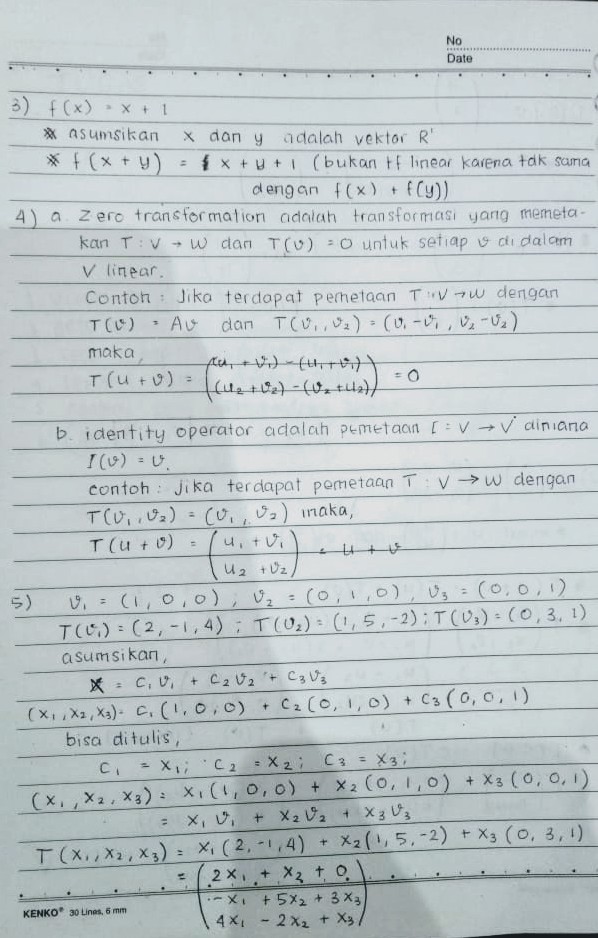 No
Date
3) f(x) = x + 1
* asumsikan x dan y adalah vektor R¹
* f(x+y) = x + y + 1 (bukan tf linear karena tdk sama
dengan f(x) + f(y))
4) a. Zero transformation adalah transformasi yang memeta-
kan T : V → W dan T(v) = 0 untuk setiap v di dalam
V linear.
Contoh : Jika terdapat pemetaan T : V → W dengan
T(v) = Av dan T(v₁, v₂) = (v₁ - v₁, v₂ - v₂)
maka,
T(u + v) = ((u₁ + v₁) - (u₁ + v₁)
(u₂ + v₂) - (v₂ + u₂)) = 0
b. identity operator adalah pemetaan I : V → V dimana
I(v) = v.
contoh : Jika terdapat pemetaan T : V → W dengan
T(v₁, v₂) = (v₁, v₂) maka,
T(u + v) = (u₁ + v₁
u₂ + v₂) = u + v
5) v₁ = (1, 0, 0) ; v₂ = (0, 1, 0) ; v₃ = (0, 0, 1)
T(v₁) = (2, -1, 4) ; T(v₂) = (1, 5, -2) ; T(v₃) = (0, 3, 1)
asumsikan,
x = c₁v₁ + c₂v₂ + c₃v₃
(x₁, x₂, x₃) = c₁(1, 0, 0) + c₂(0, 1, 0) + c₃(0, 0, 1)
bisa ditulis,
c₁ = x₁; c₂ = x₂; c₃ = x₃;
(x₁, x₂, x₃) = x₁(1, 0, 0) + x₂(0, 1, 0) + x₃(0, 0, 1)
= x₁v₁ + x₂v₂ + x₃v₃
T(x₁, x₂, x₃) = x₁(2, -1, 4) + x₂(1, 5, -2) + x₃(0, 3, 1)
= (2x₁ + x₂ + 0
-x₁ + 5x₂ + 3x₃
4x₁ - 2x₂ + x₃)
KENKO® 30 Lines, 6 mm